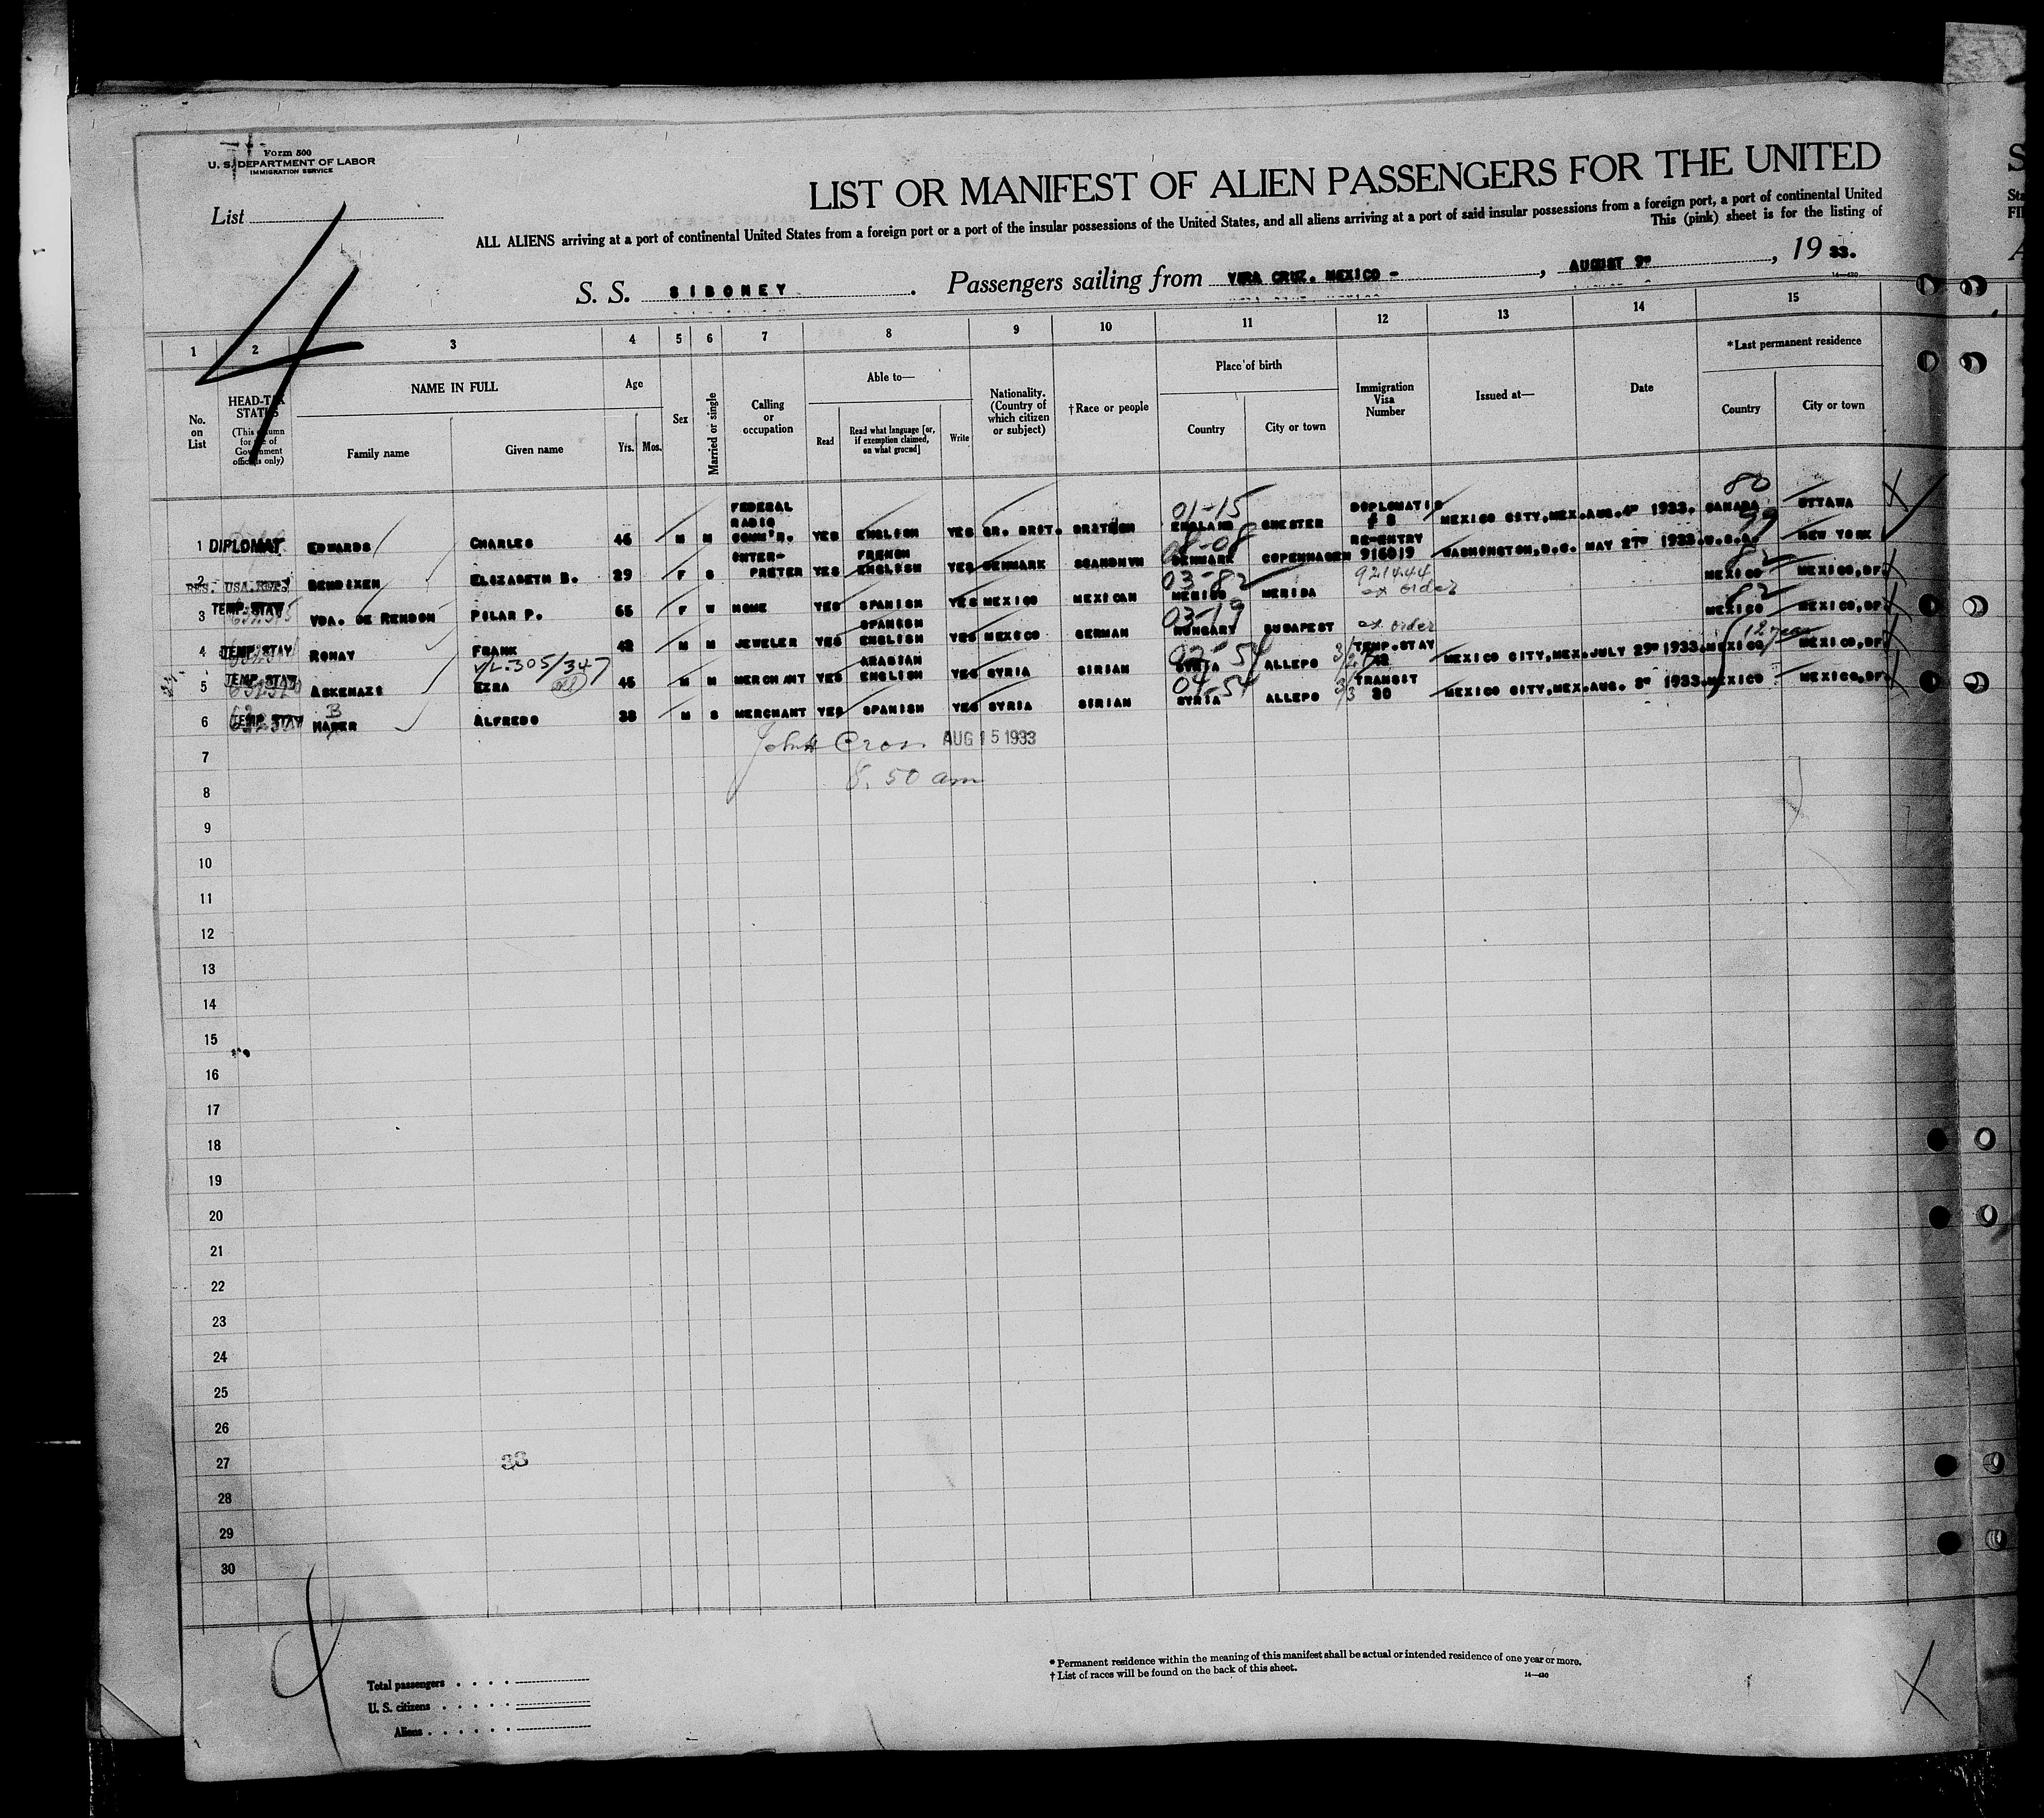 Form 500
U. S. DEPARTMENT OF LABOR
IMMIGRATION SERVICE
List
4
LIST OR MANIFEST OF ALIEN PASSENGERS FOR THE UNITED
ALL ALIENS arriving at a port of continental United States from a foreign port or a port of the insular possessions of the United States, and all aliens arriving at a port of said insular possessions from a foreign port, a port of continental United
This (pink) sheet is for the listing of
S. S. SIBONEY. Passengers sailing from VERA CRUZ. MEXICO - , AUGUST 9" , 19 33.
14—430
1 2 3 4 5 6 7 8 9 10 11 12 13 14 15
No. on List
HEAD-TAX STATUS (This column for use of Government officials only)
NAME IN FULL
Family name
Given name
Age
Yrs. Mos.
Sex
Married or single
Calling or occupation
Able to—
Read
Read what language [or, if exemption claimed, on what ground]
Write
Nationality. (Country of which citizen or subject)
† Race or people
Place of birth
Country
City or town
Immigration Visa Number
Issued at—
Date
* Last permanent residence
Country
City or town
01-15 80
1 DIPLOMAT EDWARDS CHARLES 46 M M FEDERAL RADIO COMM'R. YES ENGLISH YES GR. BRIT. BRITISH ENGLAND CHESTER DIPLOMATIC MEXICO CITY, MEX. AUG. 4" 1933. CANADA OTTAWA
08-08
2 BENDIXEN ELIZABETH B. 29 F S INTER-PRETER YES FRENCH ENGLISH YES DENMARK SCANDNVN DENMARK COPENHAGEN RE-ENTRY 916019 WASHINGTON, D.C. MAY 27" 1933. U.S.A. NEW YORK
03-82 921444 82
3 TEMP. STAY VDA. DE RENDON PILAR P. 65 F W NONE YES SPANISH YES MEXICO MEXICAN MEXICO MERIDA ex order MEXICO MEXICO, DF.
03-19 82
4 TEMP. STAY RONAY FRANK 42 M M JEWELER YES SPANISH ENGLISH YES MEXICO GERMAN HUNGARY BUDAPEST ex order MEXICO MEXICO, DF.
V/L.305/347 02-54 12 years
5 TEMP. STAY ASKENAZI EZRA 45 M M MERCHANT YES ARABIAN ENGLISH YES SYRIA SIRIAN SYRIA ALLEPO TEMP. STAY MEXICO CITY, MEX. JULY 29" 1933. MEXICO MEXICO, DF.
04-54
6 TEMP. STAY B ALFREDO 38 M S MERCHANT YES SPANISH YES SYRIA SIRIAN SYRIA ALLEPO TRANSIT 30 MEXICO CITY, MEX. AUG. 8" 1933. MEXICO MEXICO, DF.
7 John Cross AUG 15 1933
8 8.50 am
9
10
11
12
13
14
15
16
17
18
19
20
21
22
23
24
25
26
27 36
28
29
30
* Permanent residence within the meaning of this manifest shall be actual or intended residence of one year or more.
† List of races will be found on the back of this sheet.
14—430
Total passengers
U. S. citizens
Aliens